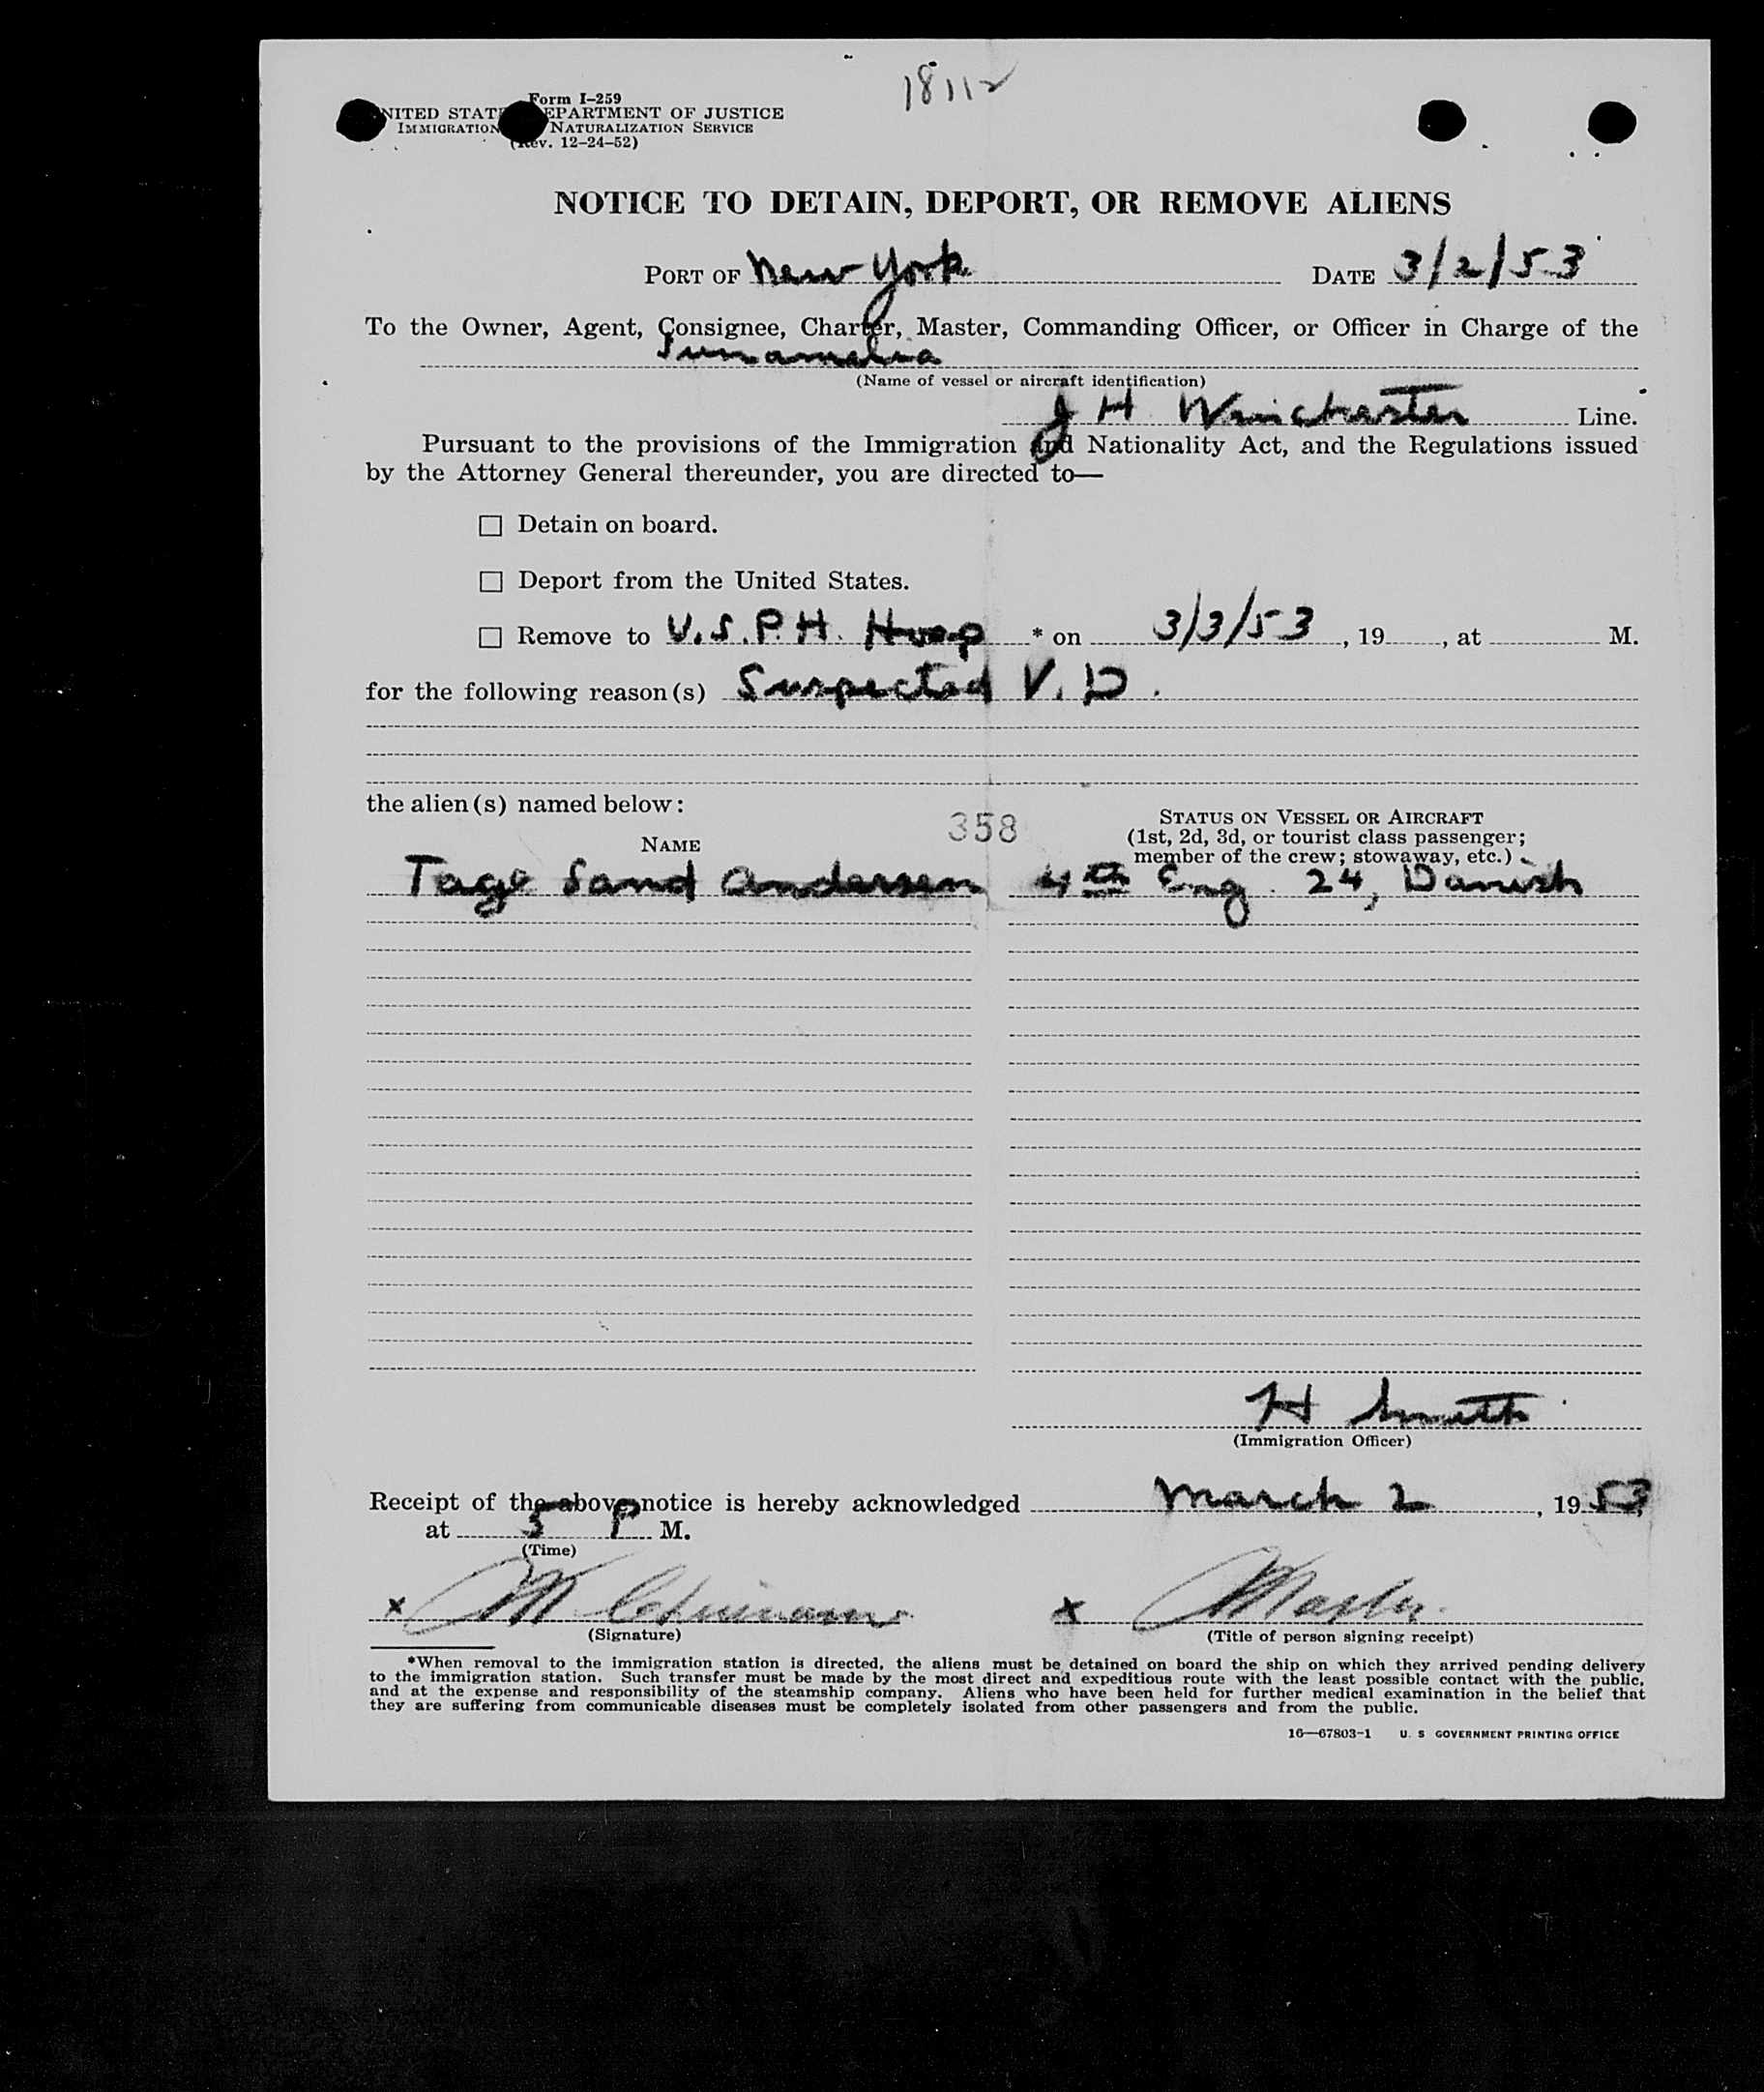 18112
Form I-259
NITED STAT EPARTMENT OF JUSTICE
IMMIGRATION NATURALIZATION SERVICE
(Rev. 12-24-52)
NOTICE TO DETAIN, DEPORT, OR REMOVE ALIENS
PORT OF New York DATE 3/2/53
To the Owner, Agent, Consignee, Charter, Master, Commanding Officer, or Officer in Charge of the
Sunamelia
(Name of vessel or aircraft identification)
J H Winchester Line.
Pursuant to the provisions of the Immigration and Nationality Act, and the Regulations issued
by the Attorney General thereunder, you are directed to—
☐ Detain on board.
☐ Deport from the United States.
☐ Remove to U.S.P.H. Hosp * on 3/3/53, 19, at M.
for the following reason(s) Suspected V.D.
the alien(s) named below:
358
STATUS ON VESSEL OR AIRCRAFT
NAME (1st, 2d, 3d, or tourist class passenger;
member of the crew; stowaway, etc.)
Tage Sand Andersen 4th Eng. 24, Danish
H Smith
(Immigration Officer)
Receipt of the above notice is hereby acknowledged March 2, 1953
at 5 P M.
(Time)
x M x Master
(Signature) (Title of person signing receipt)
*When removal to the immigration station is directed, the aliens must be detained on board the ship on which they arrived pending delivery
to the immigration station. Such transfer must be made by the most direct and expeditious route with the least possible contact with the public,
and at the expense and responsibility of the steamship company. Aliens who have been held for further medical examination in the belief that
they are suffering from communicable diseases must be completely isolated from other passengers and from the public.
16—67803-1 U. S GOVERNMENT PRINTING OFFICE